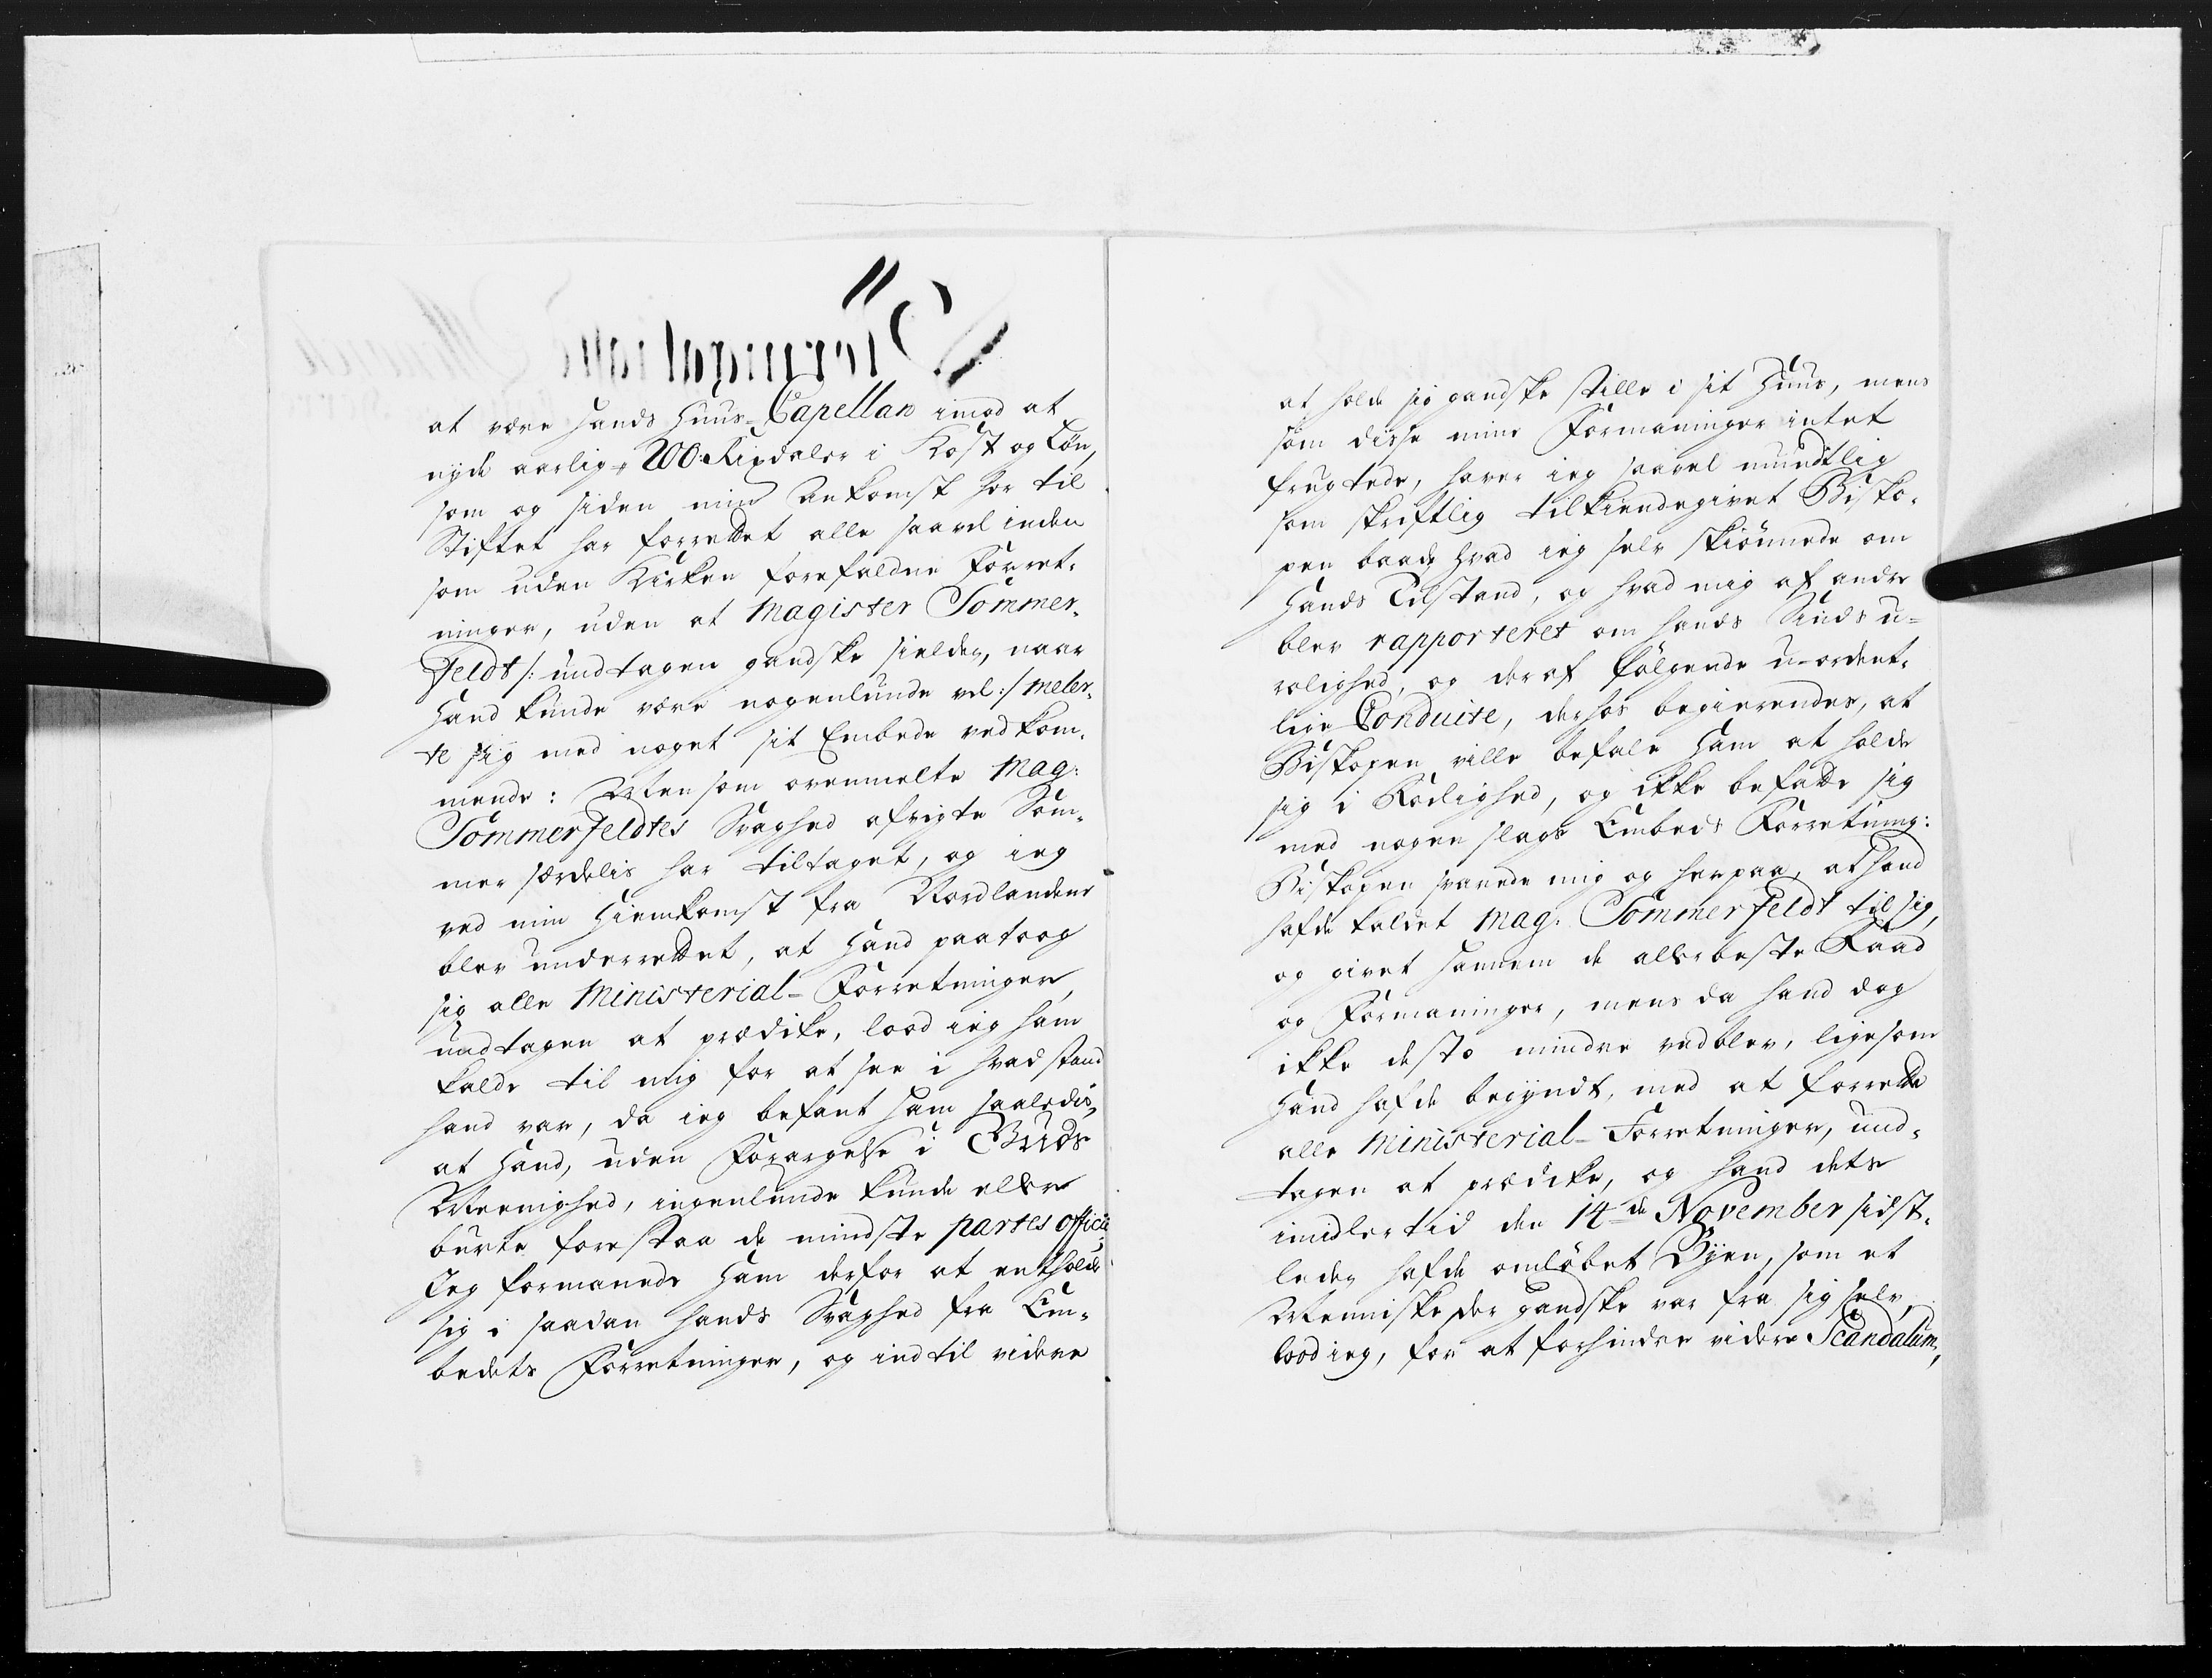 at være hands Huus-Capellan imod at
nyde aarlig 200: Rixdaler i Kost og Løn,
som og siden min Ankomst her til
Stiftet har forrettet alle saavel inden
som uden Kirken forefaldne Forret-
ninger, uden at Magister Sommer-
Feldt /: undtagen gandske sielden, naar
Hand kunde være nogenlunde vel :/ meler-
te sig med noget sit Embede vedkom-
mende: Men som ovenmelte Mag:
Sommerfeldtes Svaghed afvigte Som-
mer særdelis har tiltaget, og ieg
ved min Hiemkomst fra Nordlandene
blev underrettet, at Hand paatoog
sig alle Ministerial-Forretninger,
undtagen at prædike, lood ieg ham
kalde til mig for at see i hvad stand
hand var, da ieg befant ham saaledis,
at Hand, uden Forargelse i Guds
Meenighed, ingenlunde kunde eller
burte forestaa de mindste partes officii,
Jeg formanede Ham derfor at entholde
sig i saadan hands Svaghed fra Em-
bedets Forretninger, og indtil videre
at holde sig gandske stille i sit Huus, mens
som disse mine Formaninger intet
frugtede, haver ieg saavel mundtlig
som skriftlig tilkiendegivet Bisko-
pen baade hvad ieg selv skiønnede om
Hands Tilstand, og hvad mig af andre
blev rapporteret om hands Sinds u-
rolighed, og deraf følgende u-ordent-
lige Conduite, derhos begierendes, at
Biskopen ville befale Ham at holde
sig i Roelighed, og ikke befatte sig
med nogen slags Embeds Forretning:
Biskopen svarede mig og herpaa, at Hand
hafde kaldet Mag: Sommerfeldt til sig,
og givet hannem de allerbeste Raad
og Formaninger, mens da hand dog
ikke desto mindre vedblev, ligesom
Hand hafde begyndt, med at forrette
alle Ministerial-Forretninger, und-
tagen at prædike, og hand dette
imidlertid den 14de November sidst-
leden hafde omløbet Byen, som et
Menniske der gandske var fra sig selv,
lood ieg, for at forhindre videre Scandalum,